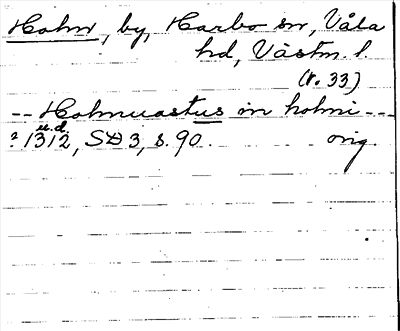 Holm, by, Harbo sn, Våla
hd, Västm. l.
(v. 33)
-- Holmuastus in holmi ---
u.d.
? 1312, SD 3, s. 90. orig.